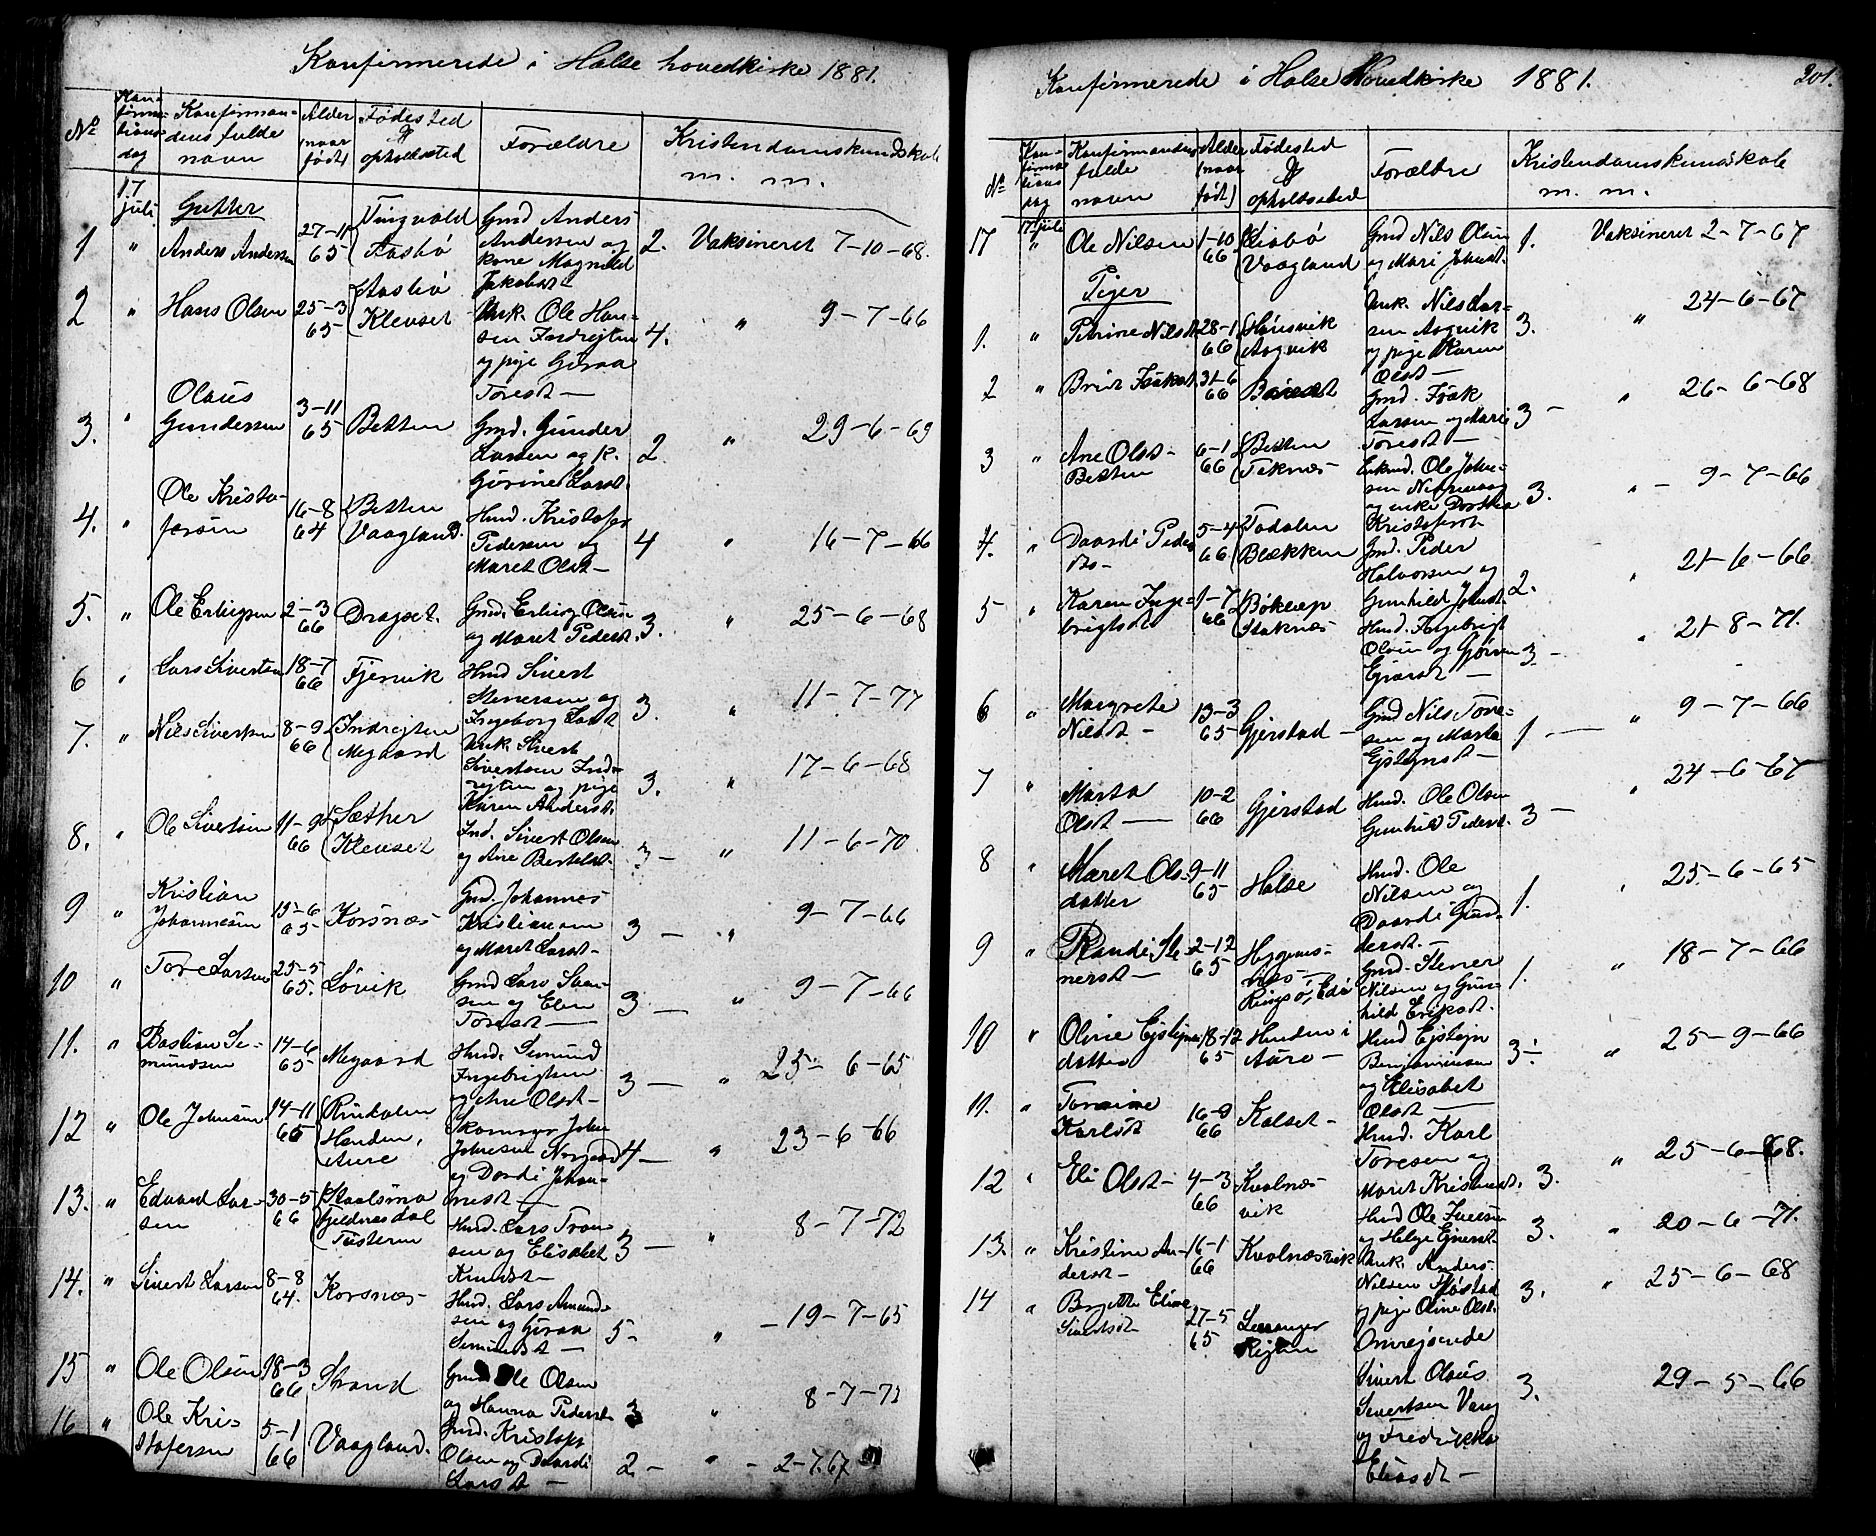 Konfirmerede i Halse hovedkirke 1881.
No
Konfirmationsdag
Konfirmandens fulde navn
Alder (naar født)
Fødested og opholdssted
Forældre
Kristendomskundskab m. m.
17 juli
Gutter
1 " Anders Andersen 27-11 65 Tingvold Aasbø Gmd Anders Andersen og kone Magnild Jakobsdt 2. Vaksineret 7-10-68.
2 " Hans Olsen 25-3 65 Aasbø Klevset Unk. Ole Hansen Indregten og pige Guraa Toresdt — 4. " 9-7-66
3. " Olaus Gundersen 3-11 65 Betten Gmd. Gunder Larsen og k. Gurine Larsdt. 2. " 29-6-69
4. " Ole Kristofersen 16-8 64 Betten Vaagland. Hmd. Kristofer Pedersen og Maret Olsdt — 4 " 16-7-66
5. " Ole Erlingsen 2-3 66 Dragset. Gmd. Erling Olsen og Maret Pedersdt. 3. " 25-6-68
6 " Lars Sivertsen 18-7 66 Fjervik Hmd Sivert Stenersen og Ingeborg Larsdt 3. " 11-7-77
7. " Nils Sivertsen 8-9 66 Indregten Megaard Unk. Sivert Sivertsen Indregten og pige Karen Andersdt. 3. " 17-6-68
8. " Ole Sivertsen 11-9 66 Sæther Klevset Ind. Sivert Olsen og Ane Bertelsdt. 3 — " 11-6-70
9 " Kristian Johannesen 15-6 65 Korsnæs Gmd. Johannes Kristiansen og Maret Larsdt — 3 — " 9-7-66
10 " Tore Larsen 25-5 65. Løvik Gmd Lars Larsen og Elen Toresdt — 3 — " 9-7-66
11. " Bastian Semundsen 14-6 65 Megaard Hmd. Semund Ingebrigtsen og Ane Olsdt — 3 — " 25-6-65
12 " Ole Johnsen 14-11 65 Rindalen Henden, Aure Skomager John Johnsen Norgaard og Dordi Johannesdt — 4 — " 23-6-66
13. " Edvard Larsen 30-5 66 Fjeldnesdal Tusteren Hmd. Lars Tronsen og Elisabet Knudsdt — 3 — " 8-7-72
14. " Sivert Larsen 8-8 64. Korsnæs Hmd. Lars Amundsen og Guraa Semundsdt — 5 - " — 19-7-65
15 " Ole Olsen 18-3 66 Strand Gmd Ole Olsen og Hanna Pedersdt 3 " 8-7-72
16 " Ole Kristofersen 5-1 66 Vaagland. Gmd. Kristofer Olsen og Daardi Larsdt — 2 — " - 2-7.67
Konfirmerede i Halse Hovedkirke 1881.
201.
No
Konfirmationsdag
Konfirmandens fulde navn
Alder (naar født)
Fødested og opholdssted
Forældre
Kristendomskundskab m. m.
17 17 juli " Ole Nilsen 1-10 66 Vaagland Gmd Nils Olsen og Mari Johnsdt. 1. Vaksineret 2-7-67
Piger
1. " Petrine Nilsdt 28-1 66 Hønsvik Aagvik Unk. Nils Larsen Aagvik og pige Karen Olsdt — 3. " 24-6-67
2 " Brit Isaksdt 31-6 66 Gmd. Isak Larsen og Mari Toresdt — 3 — " 26-6-68
3 " Ane Olsdt — Betten 6-1 66 Betten Taknæs Enkmd. Ole Johnsen og enke Dorthea Kristofersdt 3. " — 9-7-66
4. " Daardi Pedersdt — 5-4 66 Todalen Blækken Gmd. Peder Halvorsen og Gunhild Johnsdt. 2. " 21-6-66
5 " Karen Ingebrigtsdt 1-7 66 Bøklep Staknæs Hmd. Ingebrigt Olsen og Gjøren Ejnarsdt — 3 — " 21-8-71.
6 " Margrete Nilsdt — 13-3 65 Gjerstad — Gmd Nils Toresen og Marta Ejstejnsdt — 1. — " 9-7-66
7 " Marta Olsdt — 10-2 66 Gjerstad Hmd. Ole Olsen Gunhild Pedersdt. 3 — " 24-6-67
8 " Maret Olsdatter 9-11 65 Halse Hmd. Ole Nilsen og Daardi Gundersdt. — 1. " 25-6-65
9 " Randi Stenersdt — 2-12 65 Ringsø, Edø Gmd. Stener Nilsen og Gunhild Eriksdt. 1. " 18-7-66
10 " Oline Ejstejnsdatter 18-12 65 Henden i Aure — Hmd Ejstejn Benjaminsen og Elisabet Olsdt — 3 — " 25-9-66
11. " Karlsdt 16-9 66 Kalset — Hmd. Karl Toresen og Maret Kristensdt. 3. " 25-6-68.
12 " Eli Olsdt — 4-3 66 Kvalnæsvik Hmd Ole Iversen og Helge Ejnersdt. 3. " 20-6-71.
13. " Kristine Andersdt — 16-1 66 Kvalnæsvik Unk. Anders Nilsen og pige Oline Olsdt. 3. " 25-6-68
14 " Bergitte Eline Sivertsdt 27-5 65 Lesanger Rejten Omrejsende Sivert Olaus Sivertsen Vang og Fredrikka Eliasdt — 3. 29-5-66